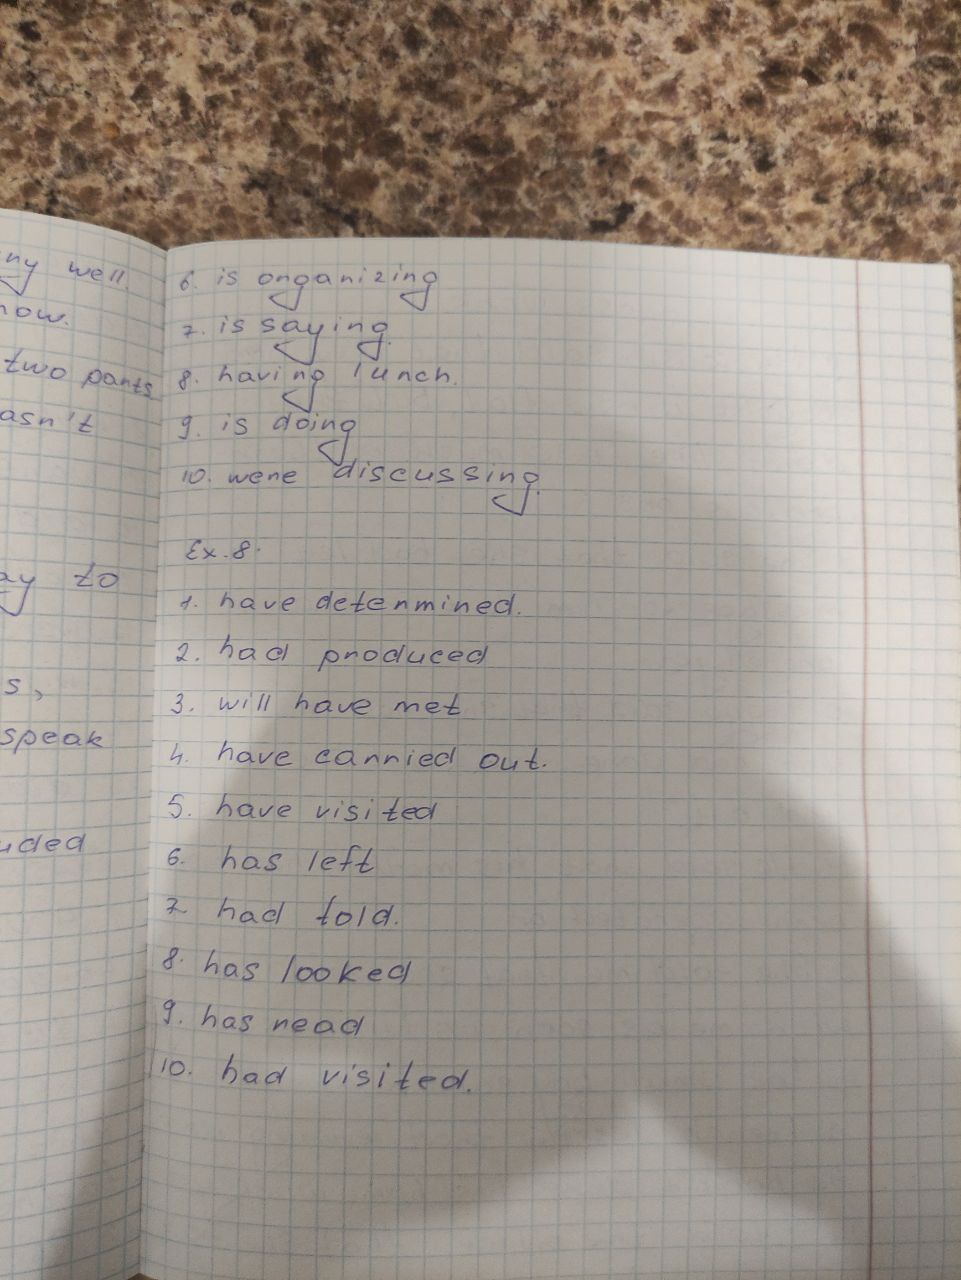 ny well.
now.
two parts
asn't
ay to
s,
speak
uded
6. is organizing
7. is saying.
8. having lunch.
9. is doing
10. were discussing.
Ex. 8.
1. have determined.
2. had produced
3. will have met
4. have carried out.
5. have visited
6. has left
7. had told.
8. has looked
9. has read
10. had visited.